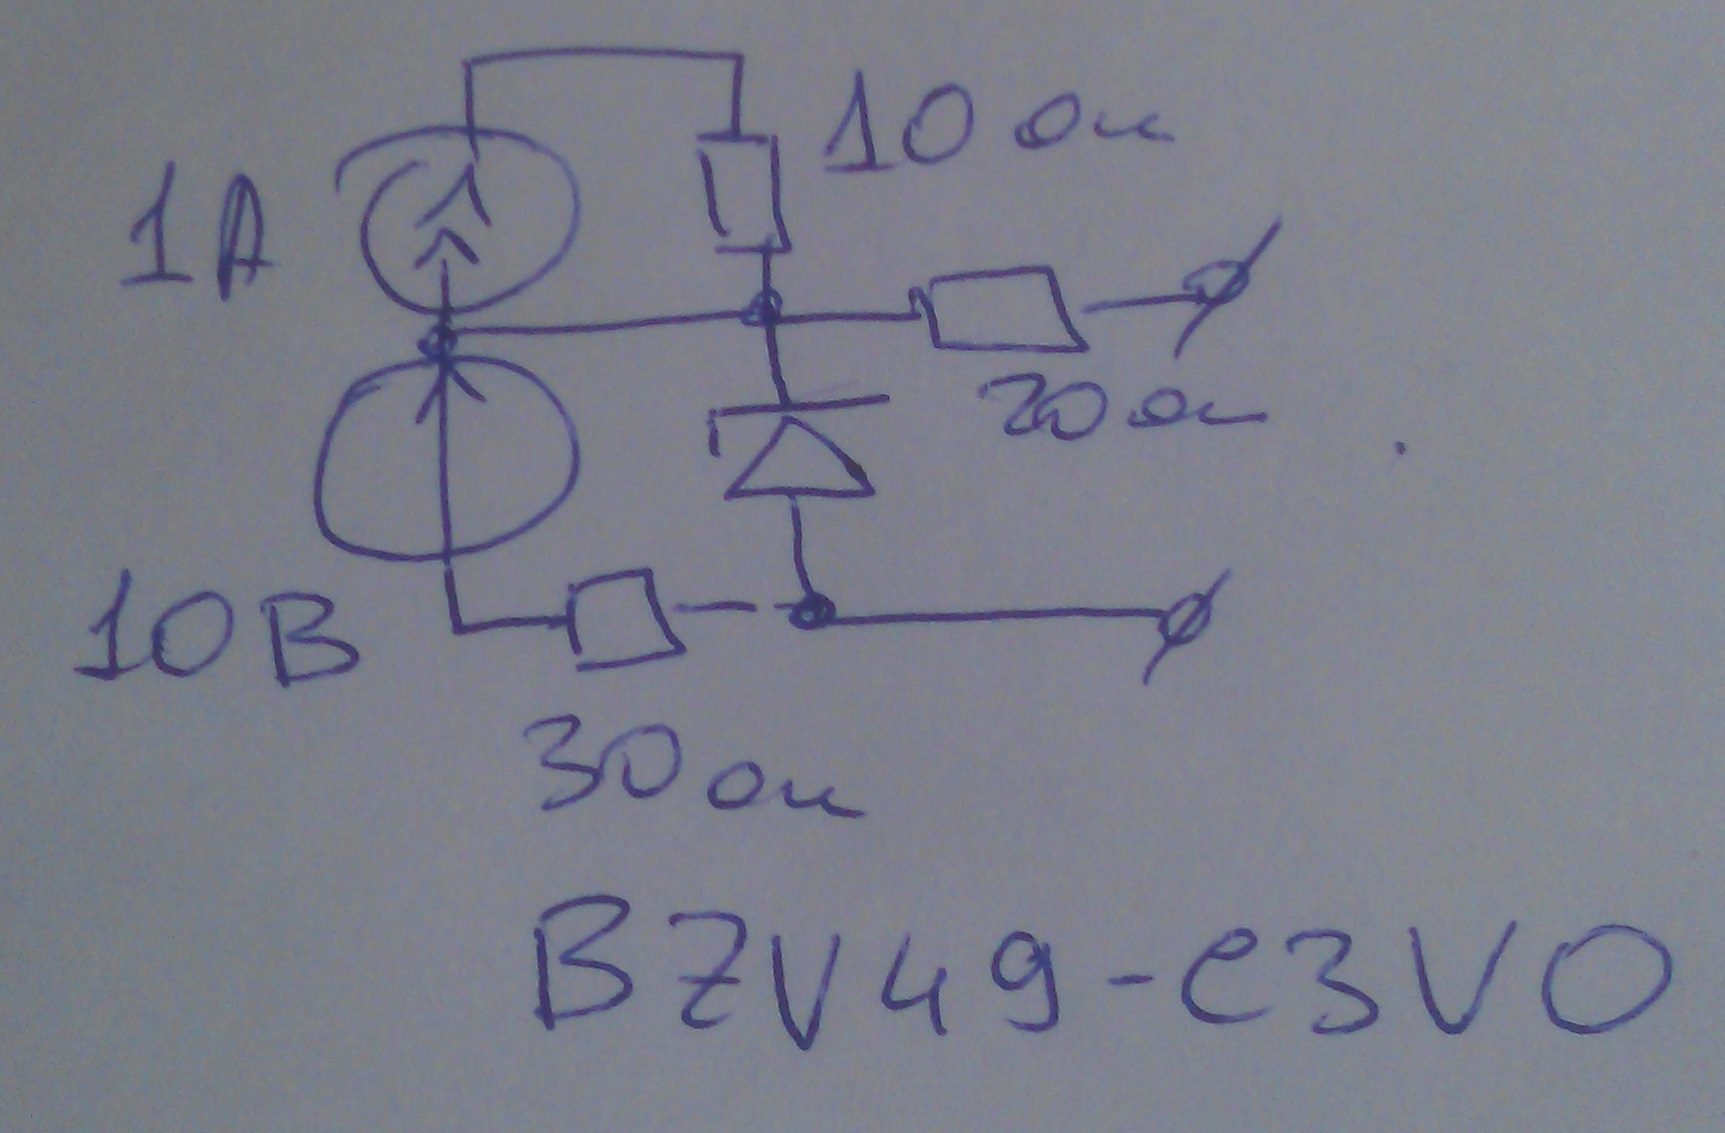 10 ом
1А
20 ом
10В
30 ом
BZV49-C3V0